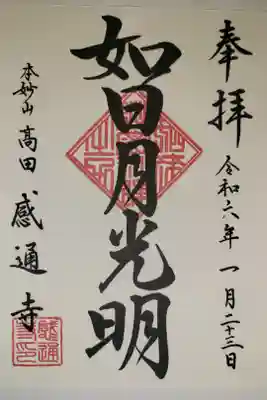 奉拝
令和六年一月二十三日
如日月光明
本妙山
高田感通寺